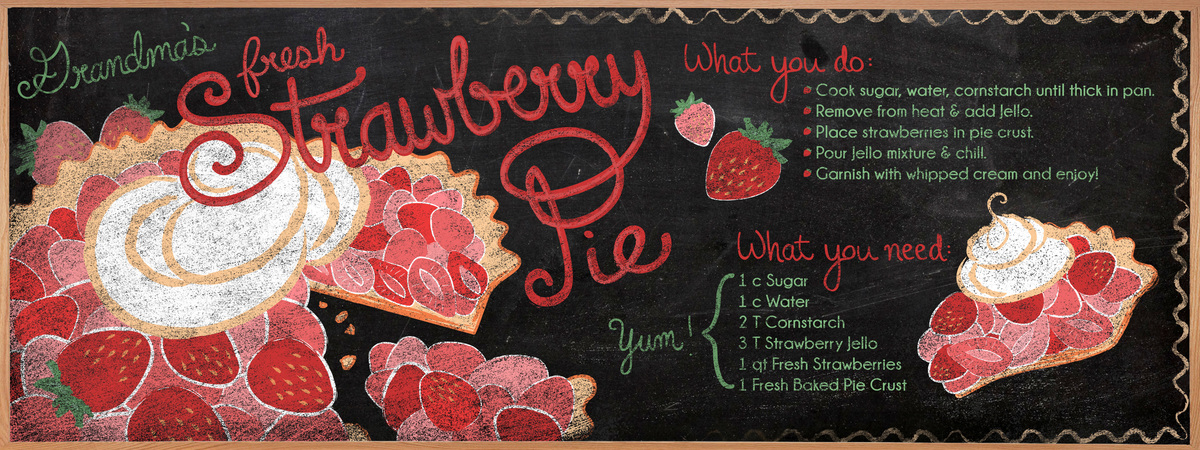 Grandma's
fresh
Strawberry
Pie
What you do:
Cook sugar, water, cornstarch until thick in pan.
Remove from heat & add Jello.
Place strawberries in pie crust.
Pour Jello mixture & chill.
Garnish with whipped cream and enjoy!
What you need:
Yum!
1 c Sugar
1 c Water
2 T Cornstarch
3 T Strawberry Jello
1 qt Fresh Strawberries
1 Fresh Baked Pie Crust